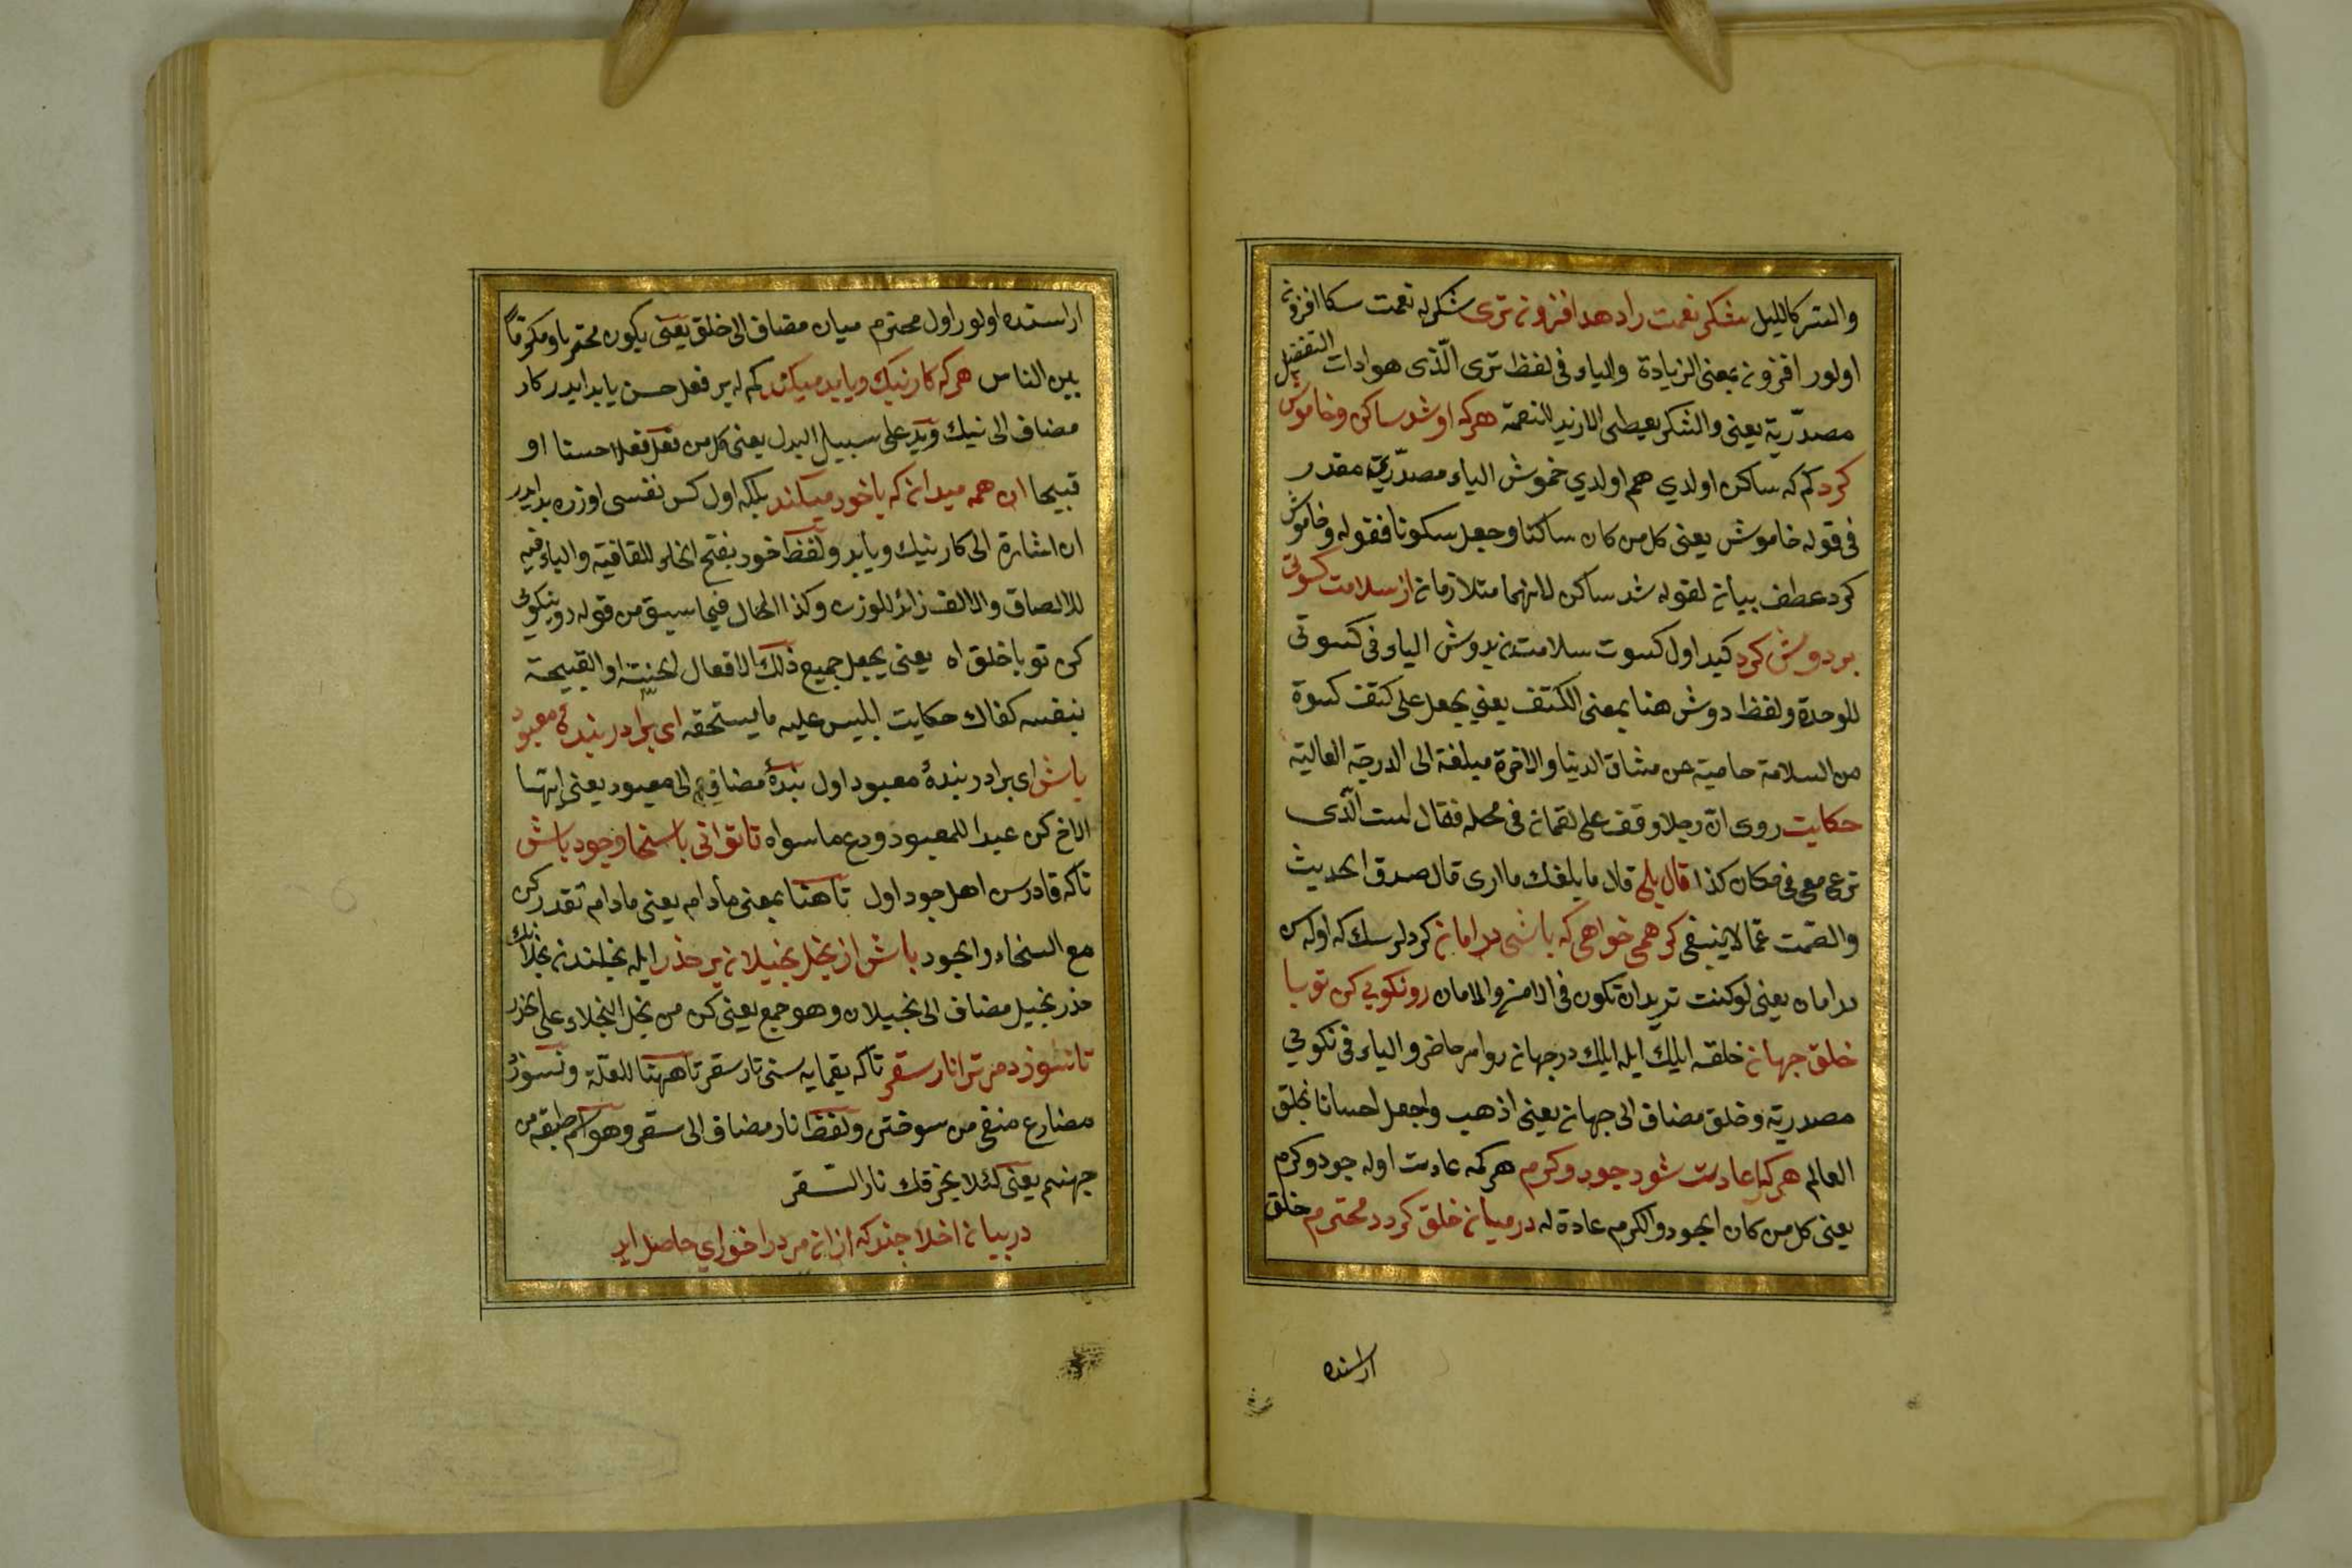 والستر كالليل شكر نعمت را دهد افزون ترى شكر له نعمت سكا افزون
اولور افزون بمعنى الزيادة والياء فى لفظ ترى الّذى هو ادات التفضيل
مصدّرية يعنى والشكر يعطى الازيد للنعمة هركه او شد ساكن وخاموش
كرد كم كه ساكن اولدي هم اولدي خموش الياء مصدّرية مقدر
فى قوله خاموش يعنى كل من كان ساكنا وجعل سكوتا فقوله وخاموش
كرد عطف بيان لقوله شد ساكن لانهما متلازمان از سلامت كسوتى
بر دوش كرد كيد اول كسوت سلامتدن بدوش الياء فى كسوتى
للوحدة ولفظ دوش هنا بمعنى الكتف يعني يجعل على كتف كسوة
من السلامة حامية عن مشاق الدنيا والاخرة مبلغة الى الدرجة العالية
حكايت روى انّ رجلا وقف على لقمان فى محله فقال لست الّذى
ترعى معى فى مكان كذا قال بلى قال ما بلغك ما ارى قال صدق الحديث
والصّمت عمّا لا ينبغى كر همى خواهى كه باشى در امان كر دلرسك كه اوله سن
در امان يعنى لو كنت تريد ان تكون فى الامن والامان رو نكويي كن تو با
خلق جهان خلقه ايلك ايله ايلك درجهان رو امر حاضر والياء فى نكويي
مصدرية وخلق مضاف الى جهان يعنى اذهب واجعل احسانا بخلق
العالم هر كرا عادت شود جود وكرم هر كمه عادت اوله جود وكرم
يعنى كل من كان الجود والكرم عادة له در ميان خلق كردد محترم خلق
اراسنده
اراسنده اولور اول محترم ميان مضاف الى خلق يعنى يكون محترما ومكرمًا
بين الناس هركه كار نيك ويا بد ميكند كم له بر فعل حسن يا بد ايدر كار
مضاف الى نيك وبد على سبيل البدل يعنى كل من فعل فعلا حسنا او
قبيحا ان همه ميدان كه با خود ميكند بلكه اول كس نفسى اوزره بد ايدر
ان اشارة الى كار نيك ويا بد ولفظ خود بفتح الخاء للقافية والباء فيه
للالصاق والالف زائد للوزن وكذا الحال فيما سبق من قوله رو نيكوى
كن تو با خلق اه يعنى يجعل جميع ذلك الافعال الحسنة او القبيحة
بنفسه كفاك حكايت ابليس عليه ما يستحقه اى برادر بندۀ معبود
باش اى برادر بندۀ معبود اول بندۀ مضاف الى معبود يعنى ايتها
الاخ كن عبدا للمعبود ودع ما سواه تا توانى با سخا وجود باش
تاكه قادرسن اهل جود اول تا هنا بمعنى مادام يعنى مادام تقدر كن
مع السخاء والجود باش از بخل بخيلان بر حذر ايله بخلندن بخلانك
حذر بخيل مضاف الى بخيلان وهو جمع يعنى كن من بخل البخلاء على حذر
تا نسوزد مر ترا نار سقر تاكه يقمايه سنى نار سقر تا ههنا للعلّة ونسوزد
مضارع منفى من سوختن ولفظ نار مضاف الى سقر وهو اسم طبقه من
جهنم يعنى لئلا يحرقك نار السقر
در بيان اخلا جند كه ازان مردرا خوارى حاصل ايد